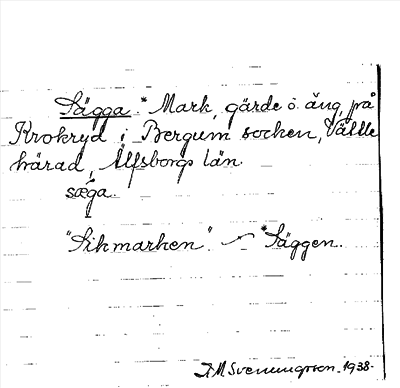 Sägga.* Mark, gärde o. äng, på
Krokryd i Bergum socken, Vättle
härad, Älfsborgs län.
sæga.
"Sikmarken". *Säggen.
A M Svenungsson. 1938.